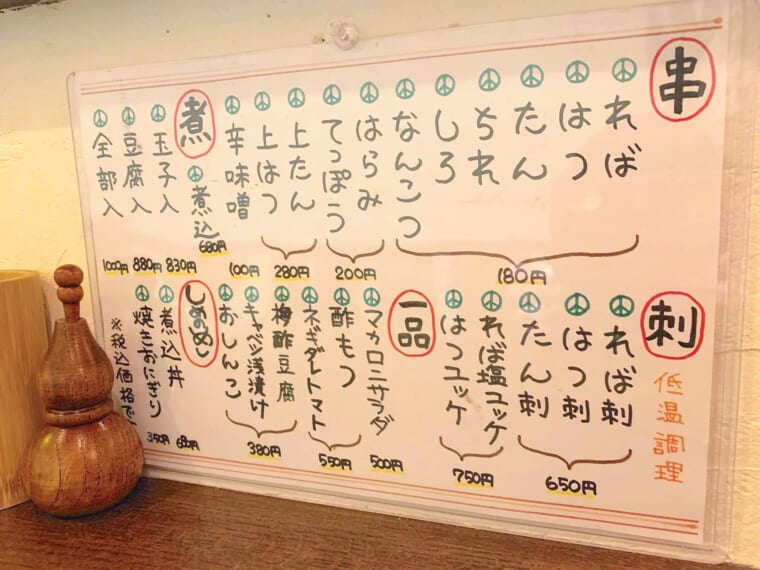 串
ればは
はつ
たん
ちれ
しろ
なんこつ
180円
はらみ
てっぽう
200円
上たん
上はつ
280円
辛味噌
100円
煮
煮込
680円
玉子入
830円
豆腐入
880円
全部入
1000円
刺
低温調理
れば刺
はつ刺
たん刺
650円
れば塩ユッケ
はつユッケ
750円
一品
マカロニサラダ
500円
酢もつ
ネギダレトマト
550円
梅酢豆腐
キャベツ浅漬け
おしんこ
380円
しめのめし
煮込丼
焼きおにぎり
350円
※税込価格で